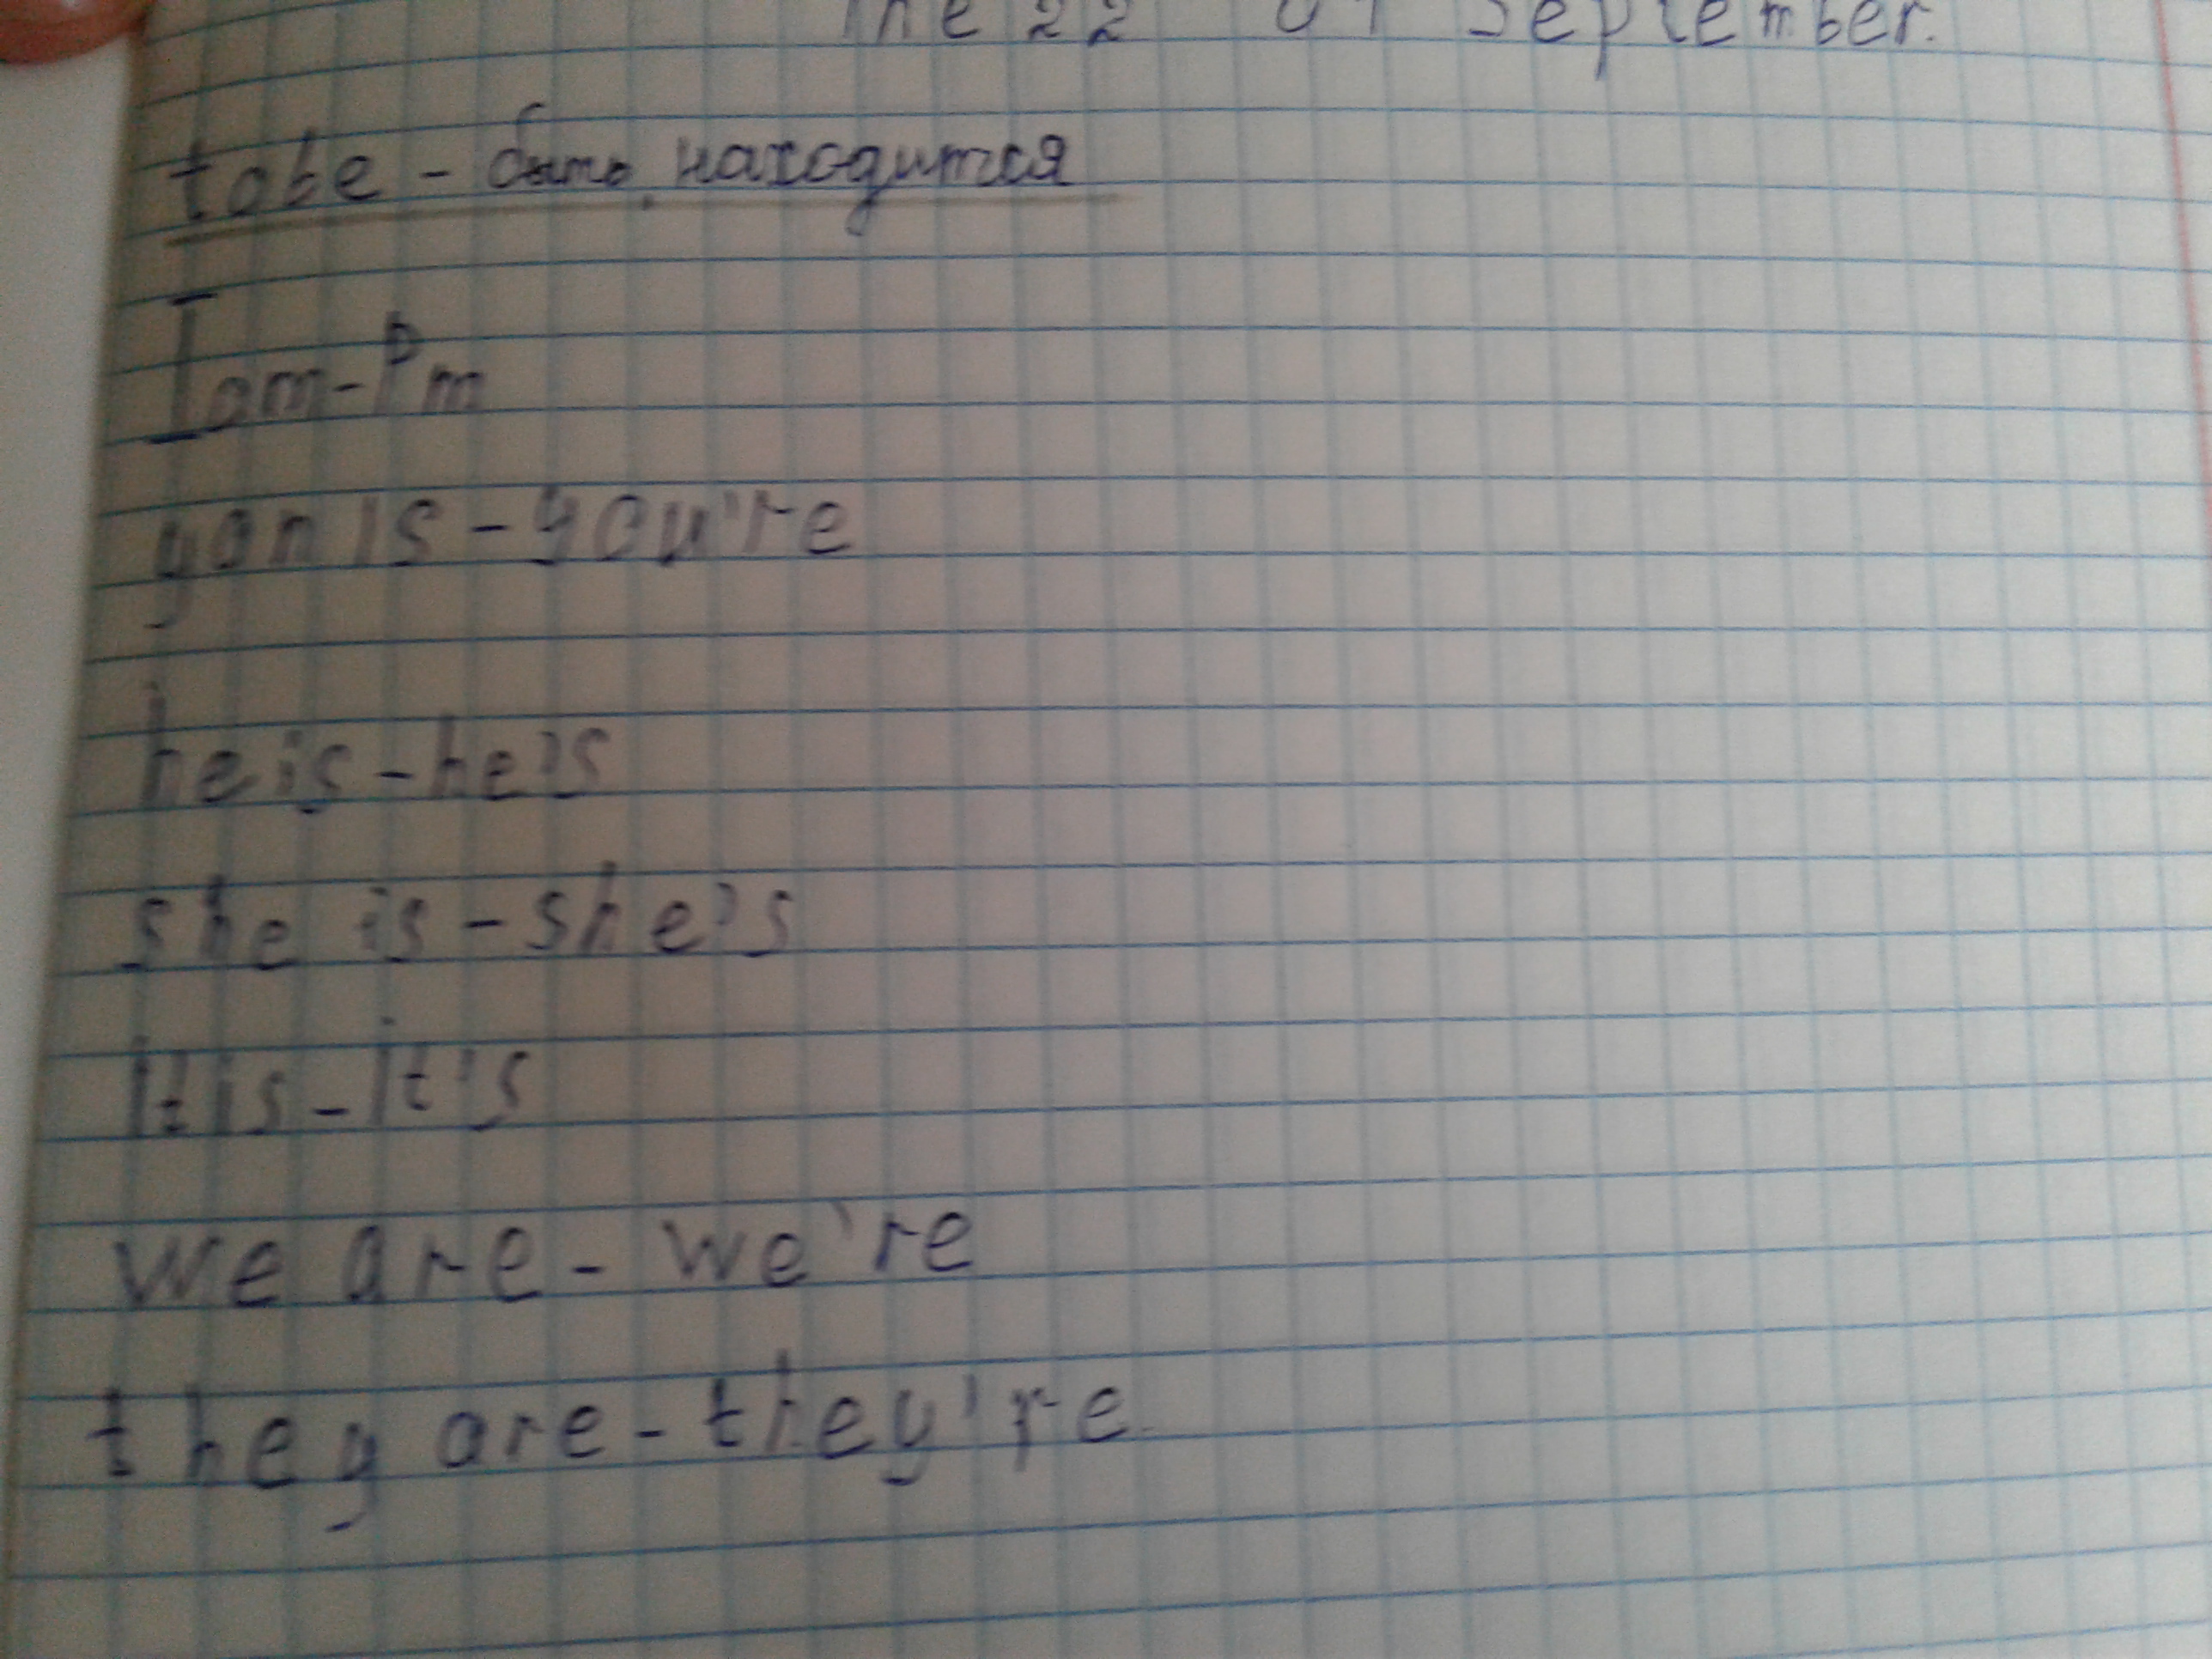 The 22 of September.
tobe - быть, находится
I am - I'm
yon is - you're
he is - he's
she is - she's
it is - it's
we are - we're
they are - they're